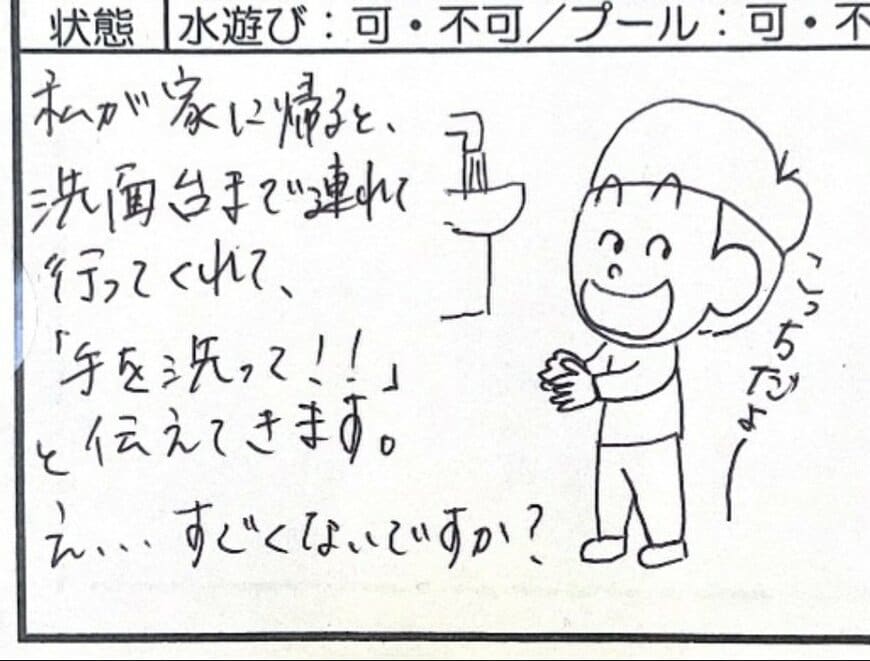 状態 水遊び：可・不可／プール：可・不
私が家に帰ると、
洗面台まで連れて
行ってくれて、
「手を洗って！！」
と伝えてきます。
え、、、すごくないですか？
こっちだよー